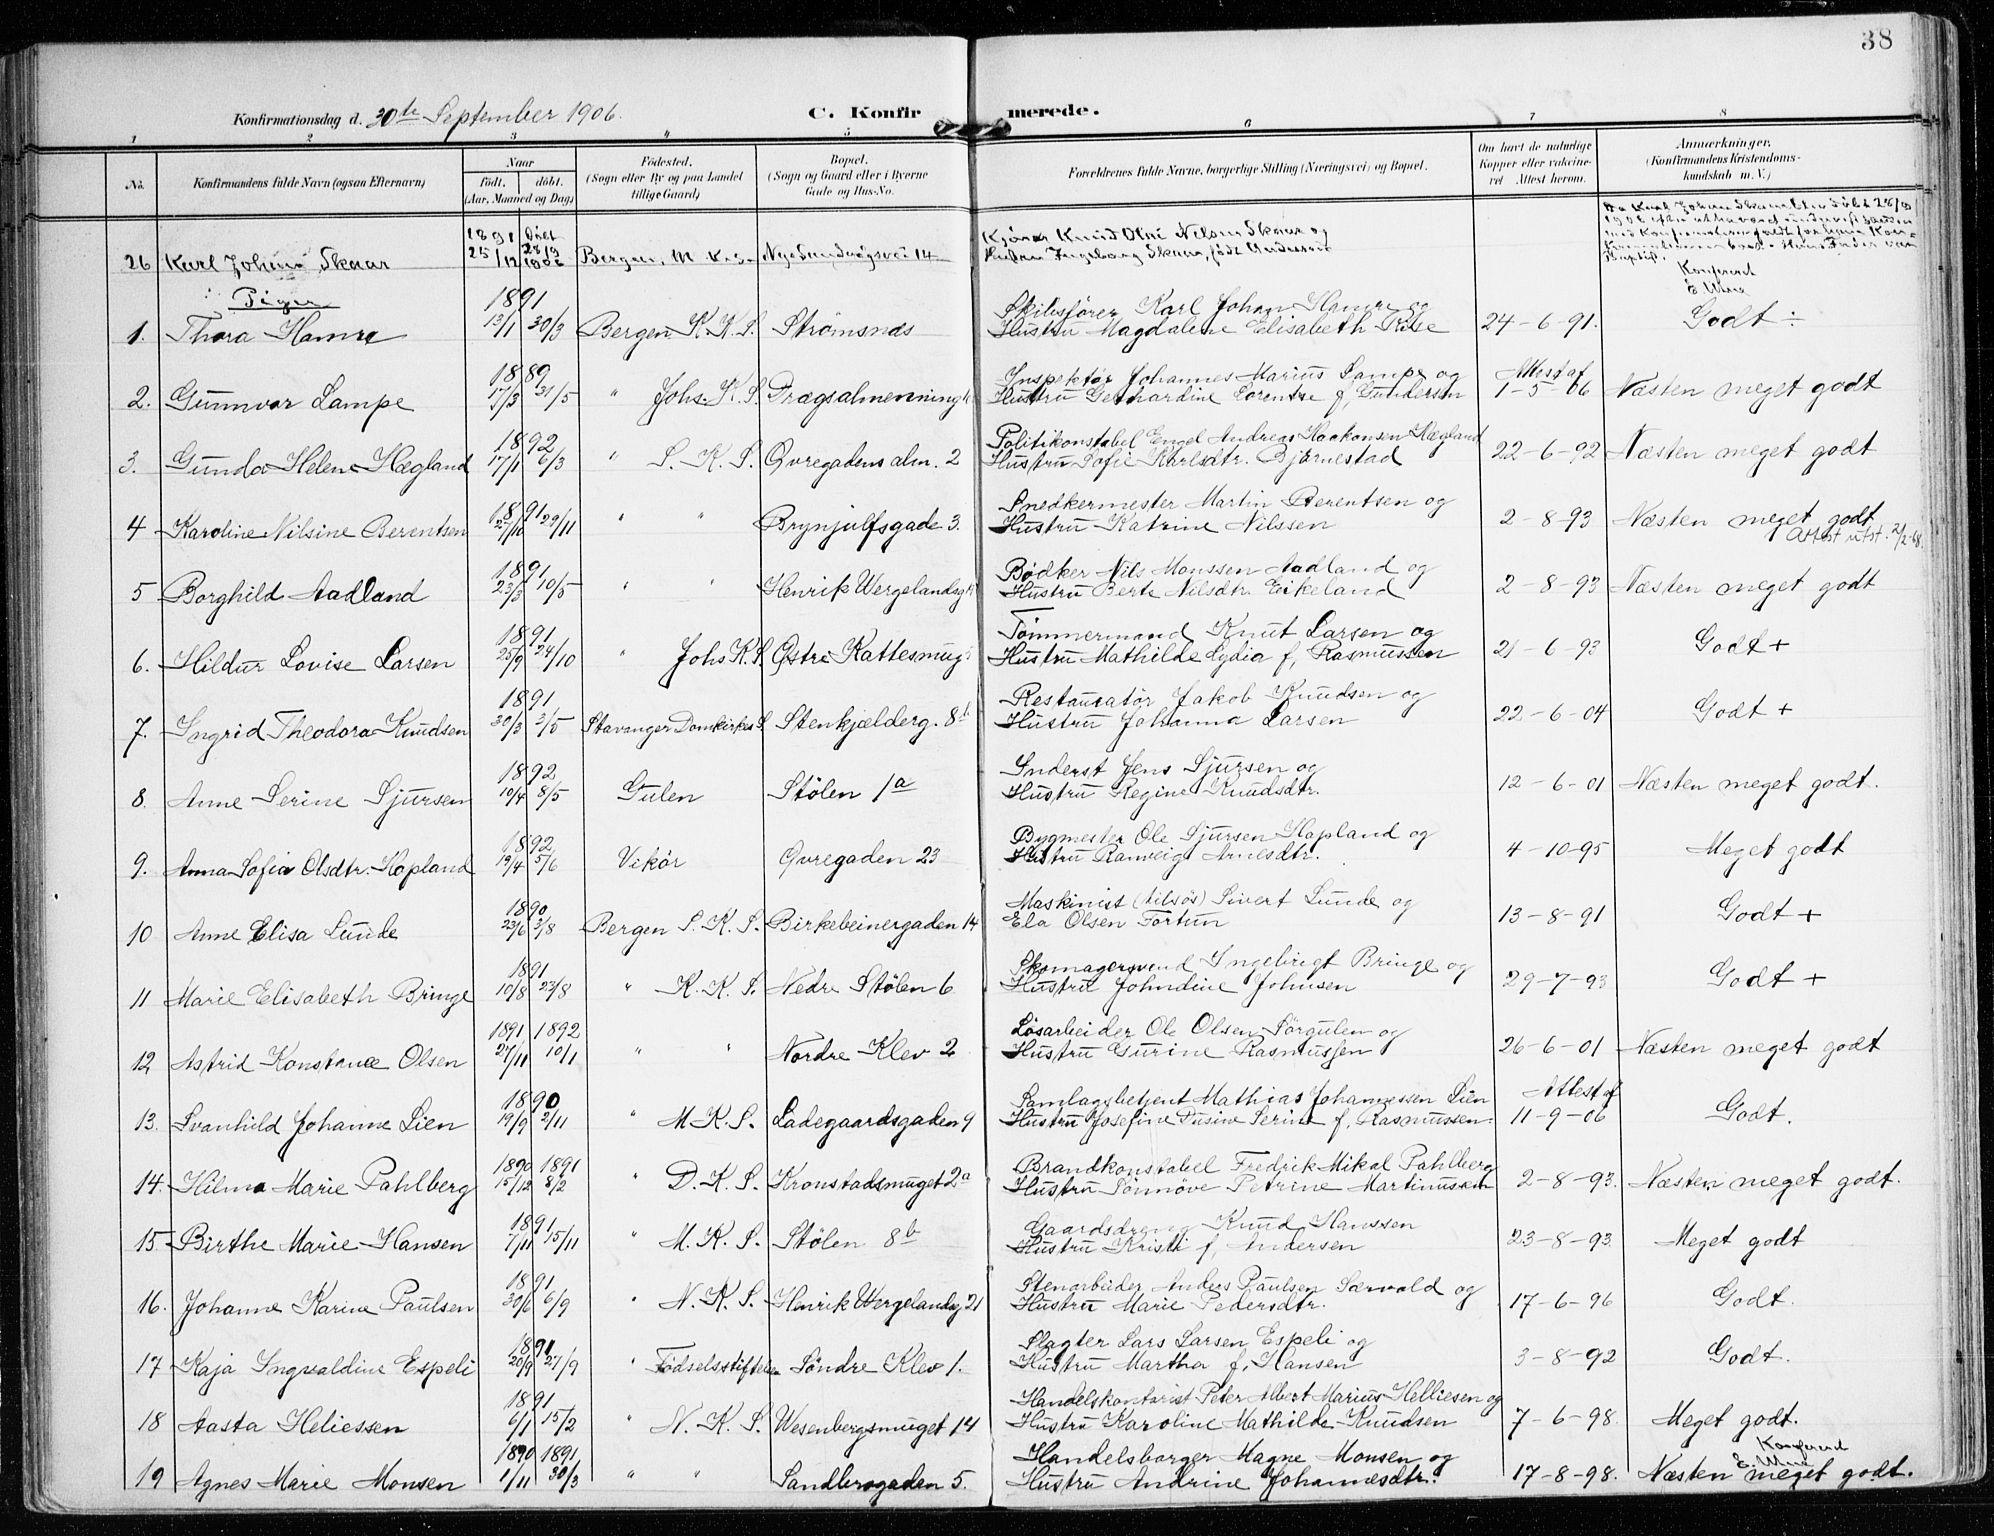 38
Konfirmationsdag d. 30te September 1906. C. Konfirmerede.
1 2 3 4 5 6 7 8
No. Konfirmandens fulde Navn (ogsaa Efternavn) Naar født. døbt. (Aar, Maaned og Dag) Fødested. (Sogn eller By og paa Landet tillige Gaard) Bopæl. (Sogn og Gaard eller i Byerne Gade og Hus-No. Forældrenes fulde Navne, borgerlige Stilling (Næringsvei) og Bopæl. Om havt de naturlige Kopper eller vakcineret Attest herom. Anmærkninger. (Konfirmandens Kristendomskundskab m. V.)
26 Karl Johan Skaar 1891 25/12 Bergen, M. K. S. Nye Sandviksvei 14 Knud Olai Nilsen Skaar og
Hustru Ingeborg Skaar, født Andersen
Konfereret
Piger
1. Thora Hamre 1891 13/1 30/3 Bergen K. K. S. Strømsnæs Skibsfører Karl Johan Hamre og
Hustru Magdalene Elisabeth Riise 24-6-91. Godt ÷
2. Gunnvor Lampe 1889 17/3 31/5 " Johs. K. S. Dragsalmenning Inspektør Johannes Marius Lampe og
Hustru Gerhardine Lorentse f. Gundersen Attest af 1-5-06 Næsten meget godt
3. Gunda Helene Hægland 1892 17/1 6/3 " S. K. S. Øvregadens alm. 2 Politikonstabel Engel Andreas Haakonsen Hægland
Hustru Sofie Karlsdtr. Bjørnestad 22-6-92 Næsten meget godt
4 Karoline Nilsine Berentsen 1891 27/10 29/11 " " Brynjulfsgade 3. Snedkermester Martin Berentsen og
Hustru Katrine Nilssen 2-8-93 Næsten meget godt
Attest utst. 2/2-68.
5 Borghild Aadland 1891 23/3 10/5 " " Henrik Wergelandsg. Bødker Nils Monssen Aadland og
Hustru Berte Nilsdtr. Eikeland 2-8-93 Næsten meget godt
6. Hildur Lovise Larsen 1891 25/9 24/10 " Johs K. S. Østre Kattesmug Tømmermand Knut Larsen og
Hustru Mathilde Lydia f. Rasmussen 21-6-93 Godt +
7. Ingrid Theodora Knudsen 1891 30/3 3/5 Stavanger Domkirkes S. Stenkjælderg. 8b Restauratør Jakob Knudsen og
Hustru Johanna Larsen 22-6-04 Godt +
8. Anne Serine Sjursen 1892 10/4 8/5 Gulen Stølen 1a Inderst Jens Sjursen og
Hustru Regine Knudsdtr. 12-6-01 Næsten meget godt.
9. Anna Sofia Olsdtr. Hopland 1892 19/4 5/6 Vikør Øvregaden 23 Bygmester Ole Sjursen Hopland og
Hustru Ranveig Arnesdtr. 4-10-95 Meget godt
10 Anne Elisa Lunde 1890 23/6 3/8 Bergen S. K. S. Birkebeinergaden 14 Maskinist (tilsjøs) Sivert Lunde og
Ela Olsen Fortun 13-8-91 Godt +
11 Marie Elisabeth Bringe 1891 10/8 23/8 " K. K. S. Nedre Stølen 6 Skomagersvend Ingebrigt Bringe og
Hustru Johndine Johnsen 29-7-93 Godt +
12 Astrid Konstance Olsen 1891 27/11 1892 10/1 " " Nordre Klev 2 Løsarbeider Ole Olsen Sørgulen og
Hustru Gurine Rasmussen 26-6-01 Næsten meget godt
13. Svanhild Johanne Lien 1890 19/9 2/11 " M. K. S. Ladegaardsgaden 9 Samlagsbetjent Mathias Johannessen Lien
Hustru Josefine Dusine Serine f. Rasmussen Attest af 11-9-06 Godt.
14. Hilma Marie Pahlberg 1890 15/12 1891 8/2 " D. K. S. Kronstadsmuget 2a Brandkonstabel Fredrik Mikal Pahlberg
Hustru Sønnøve Petrine Martinussen 2-8-93. Næsten meget godt.
15. Birthe Marie Hansen 1891 7/11 15/11 " M. K. S. Stølen 8b Gaardsdreng Knud Hanssen
Hustru Kristi f. Andersen 23-8-93 Meget godt
16. Johanne Karine Paulsen 1891 30/6 6/9 " N. K. S. Henrik Wergelandsg 21 Stenarbeider Anders Paulsen Sævold og
Hustru Marie Pedersdtr. 17-6-96 Godt.
17 Kaja Ingvaldine Espeli 1891 20/9 27/9 " Fødselsstiftelsen Søndre Klev 1. Slagter Lars Larsen Espeli og
Hustru Martha f. Hansen 3-8-92 Godt.
18 Aasta Heliessen 1891 6/1 15/2 " N. K. S. Wesenbergsmuget 14 Handelskontorist Peter Albert Marius Helliesen og
Hustru Karoline Mathilde Knudsen 7-6-98. Meget godt.
19 Agnes Marie Monsen 1890 1/11 1891 30/3 " " Sandbrogaden 5. Handelsborger Magne Monsen og
Hustru Andrine Johannesdtr. 17-8-98. Næsten meget godt.
Konfereret